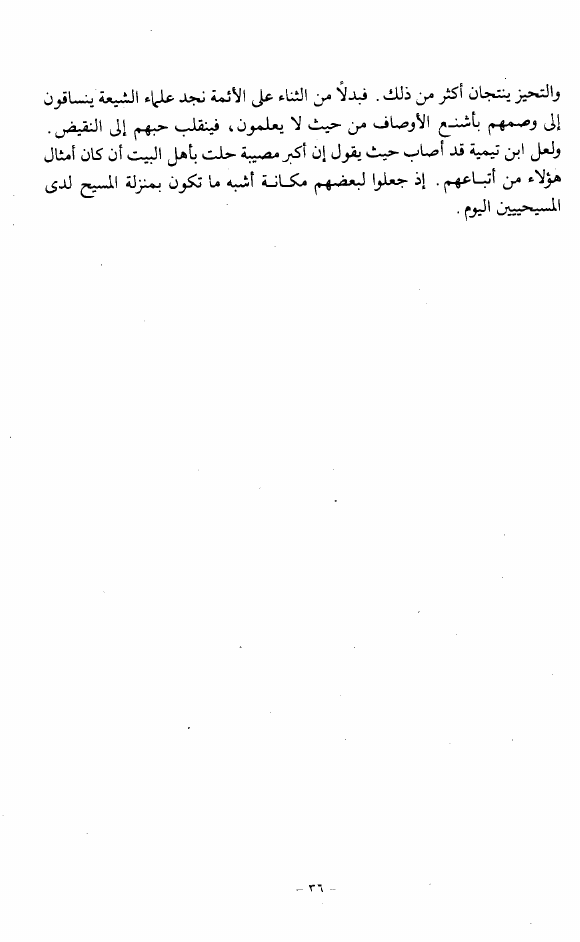 والتحيز ينتجان أكثر من ذلك. فبدلاً من الثناء على الأئمة نجد علماء الشيعة ينساقون
إلى وصمهم بأشنع الأوصاف من حيث لا يعلمون، فينقلب حبهم إلى النقيض.
ولعل ابن تيمية قد أصاب حيث يقول إن أكبر مصيبة حلت بأهل البيت أن كان أمثال
هؤلاء من أتباعهم. إذ جعلوا لبعضهم مكانة أشبه ما تكون بمنزلة المسيح لدى
المسيحيين اليوم.
- ٣٦ -